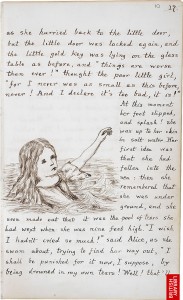 as she hurried back to the little door,
but the little door was locked again, and
the little gold key was lying on the glass
table as before, and "things are worse
than ever!" thought the poor little girl,
"for I never was as small as this before,
never! And I declare it's too bad, it is!"
At this moment
her foot slipped,
and splash! she
was up to her chin
in salt water. Her
first idea was
that she had
fallen into the
sea: then she
remembered that
she was under-
ground, and she
soon made out that it was the pool of tears she
had wept when she was nine feet high. "I wish
I hadn't cried so much!" said Alice, as she
swam about, trying to find her way out, "I
shall be punished for it now, I suppose, by
being drowned in my own tears! Well! that'll